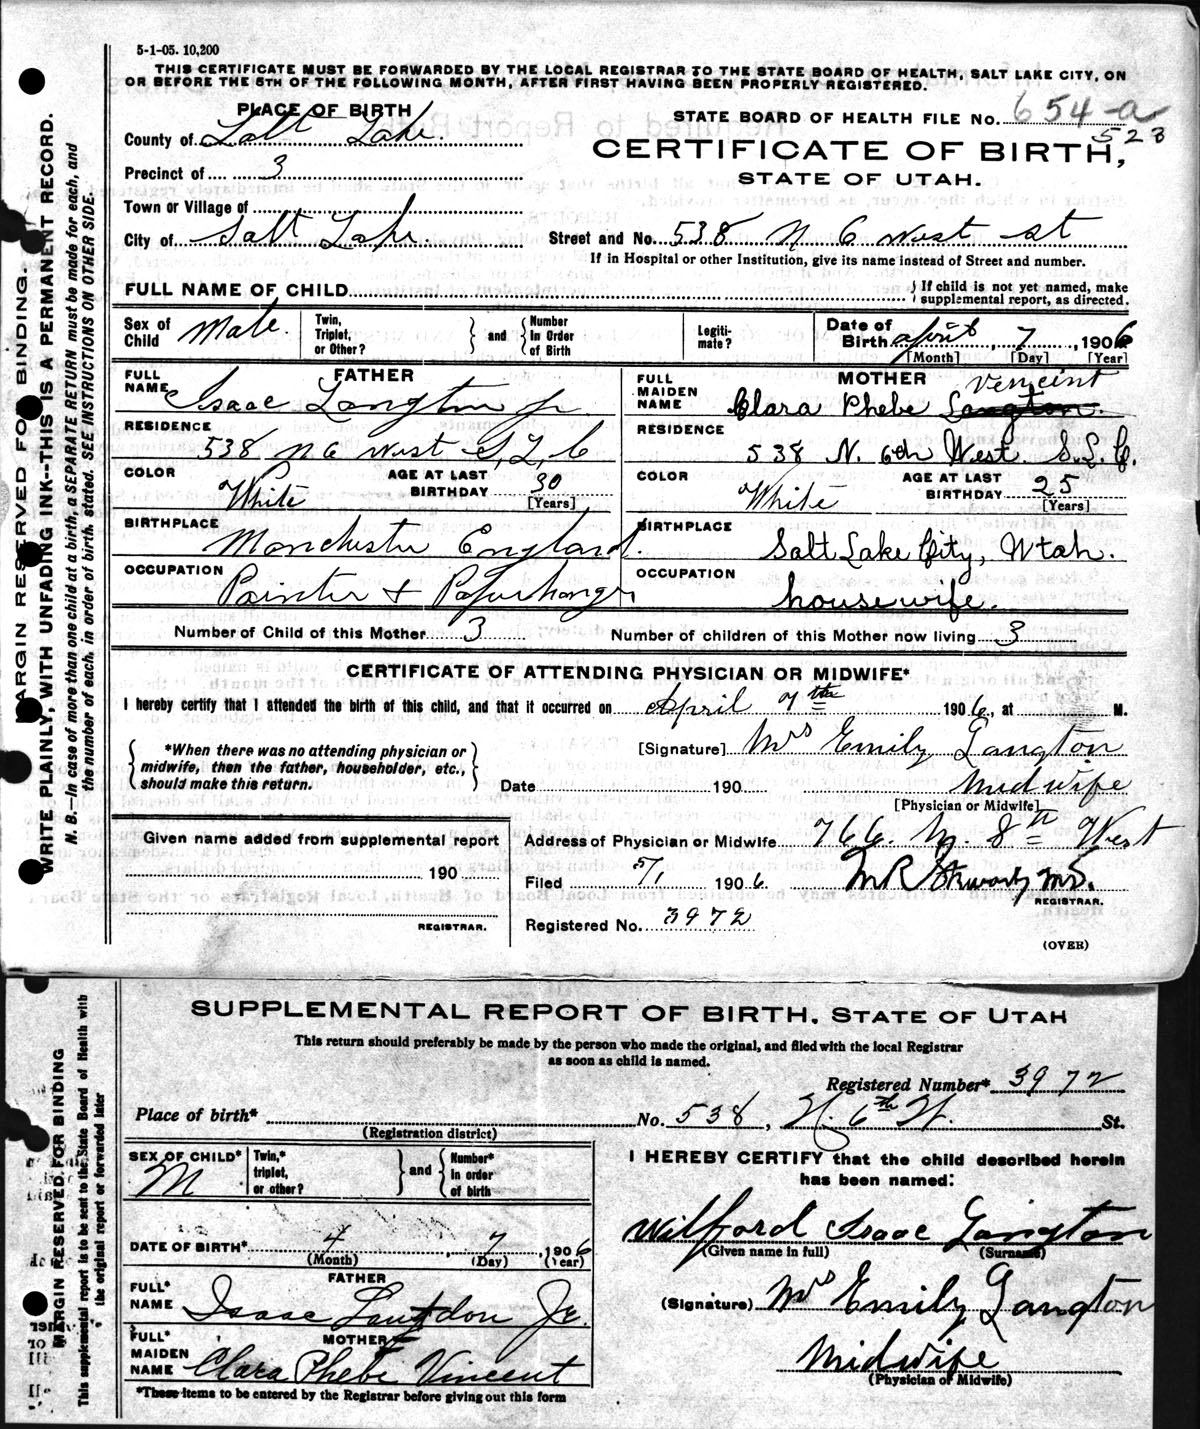 5-1-05. 10,200
THIS CERTIFICATE MUST BE FORWARDED BY THE LOCAL REGISTRAR TO THE STATE BOARD OF HEALTH, SALT LAKE CITY, ON
OR BEFORE THE 5TH OF THE FOLLOWING MONTH, AFTER FIRST HAVING BEEN PROPERLY REGISTERED.
PLACE OF BIRTH
STATE BOARD OF HEALTH FILE No. 654-a
523
County of Salt Lake.
CERTIFICATE OF BIRTH,
Precinct of 3
STATE OF UTAH.
Town or Village of
City of Salt Lake. Street and No. 538 N 6 West st
If in Hospital or other Institution, give its name instead of Street and number.
FULL NAME OF CHILD } If child is not yet named, make supplemental report, as directed.
Sex of Child Male. Twin, Triplet, or Other? } and { Number In Order of Birth Legiti-mate? Date of Birth April, 7, 1906
[Month] [Day] [Year]
FATHER
FULL NAME Isaac Langton jr
RESIDENCE 538 N 6 West S, L, C
COLOR White AGE AT LAST BIRTHDAY 30 [Years]
BIRTHPLACE Manchester England.
OCCUPATION Painter & Paperhanger
MOTHER
FULL MAIDEN NAME Clara Phebe Langton.
RESIDENCE 538 N. 6th West. S.L.C.
COLOR White AGE AT LAST BIRTHDAY 25 [Years]
BIRTHPLACE Salt Lake City, Utah.
OCCUPATION housewife.
Number of Child of this Mother 3 Number of children of this Mother now living 3
CERTIFICATE OF ATTENDING PHYSICIAN OR MIDWIFE*
I hereby certify that I attended the birth of this child, and that it occurred on April 7th 1906, at M.
{ *When there was no attending physician or midwife, then the father, householder, etc., should make this return. }
[Signature] Mrs Emily Langton
Date 190 Midwife
[Physician or Midwife]
Given name added from supplemental report
190
REGISTRAR.
Address of Physician or Midwife 766. N. 8th West
Filed 5/1 1906.
REGISTRAR.
Registered No. 3972
(OVER)
MARGIN RESERVED FOR BINDING.
WRITE PLAINLY, WITH UNFADING INK--THIS IS A PERMANENT RECORD.
N. B.—In case of more than one child at a birth, a SEPARATE RETURN must be made for each, and
the number of each, in order of birth, stated. SEE INSTRUCTIONS ON OTHER SIDE.
SUPPLEMENTAL REPORT OF BIRTH, STATE OF UTAH
This return should preferably be made by the person who made the original, and filed with the local Registrar
as soon as child is named.
Registered Number* 3972
Place of birth* No. 538, N. 6th W. St.
(Registration district)
SEX OF CHILD* M Twin,* triplet, or other? } and { Number* in order of birth
DATE OF BIRTH* 4, 7, 1906
(Month) (Day) (Year)
FATHER
FULL* NAME Isaac Langdon Jr.
MOTHER
FULL* MAIDEN NAME Clara Phebe Vincent
*These items to be entered by the Registrar before giving out this form
I HEREBY CERTIFY that the child described herein
has been named:
Wilford Isaac Langton
(Given name in full) (Surname)
(Signature) Mrs Emily Langton
Midwife
(Physician or Midwife)
MARGIN RESERVED FOR BINDING
This supplemental report is to be sent to the State Board of Health with
the original report or forwarded later